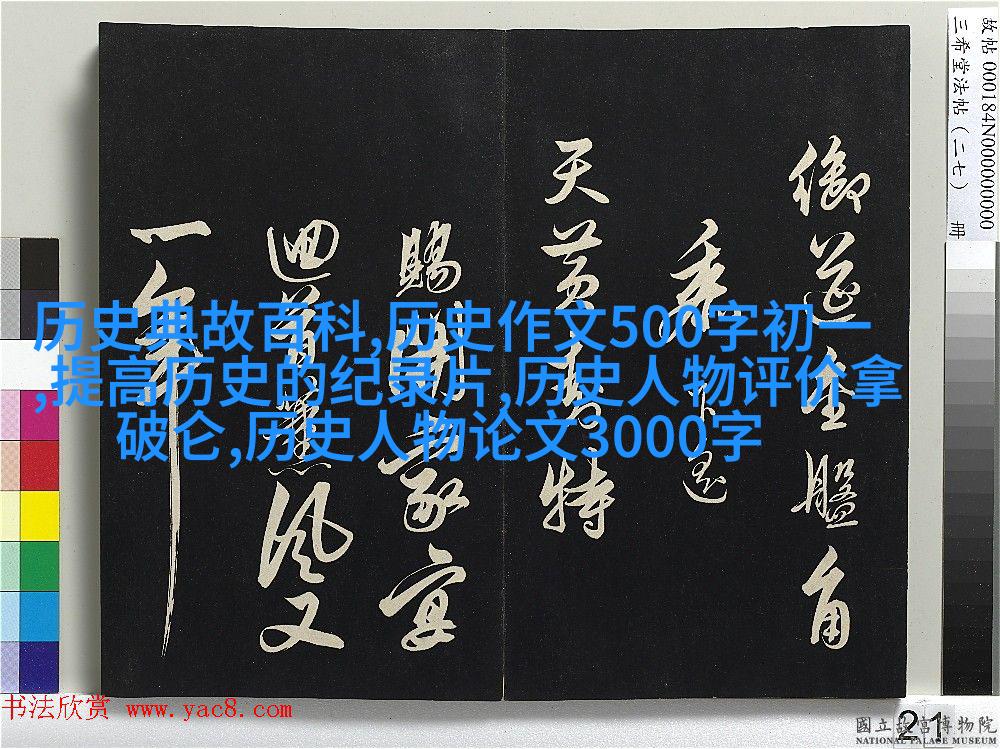 御筵金盤角
黍
天黃
特
賜
家宴
迴首薰風又
一年
历史典故百科,历史作文500字初一
,提高历史的纪录片,历史人物评价拿
破仑,历史人物论文3000字
故帖 000184N000000000
三希堂法帖(二七) 册
书法欣赏 www.yac8.com
21
國立故宮博物院
NATIONAL PALACE MUSEUM